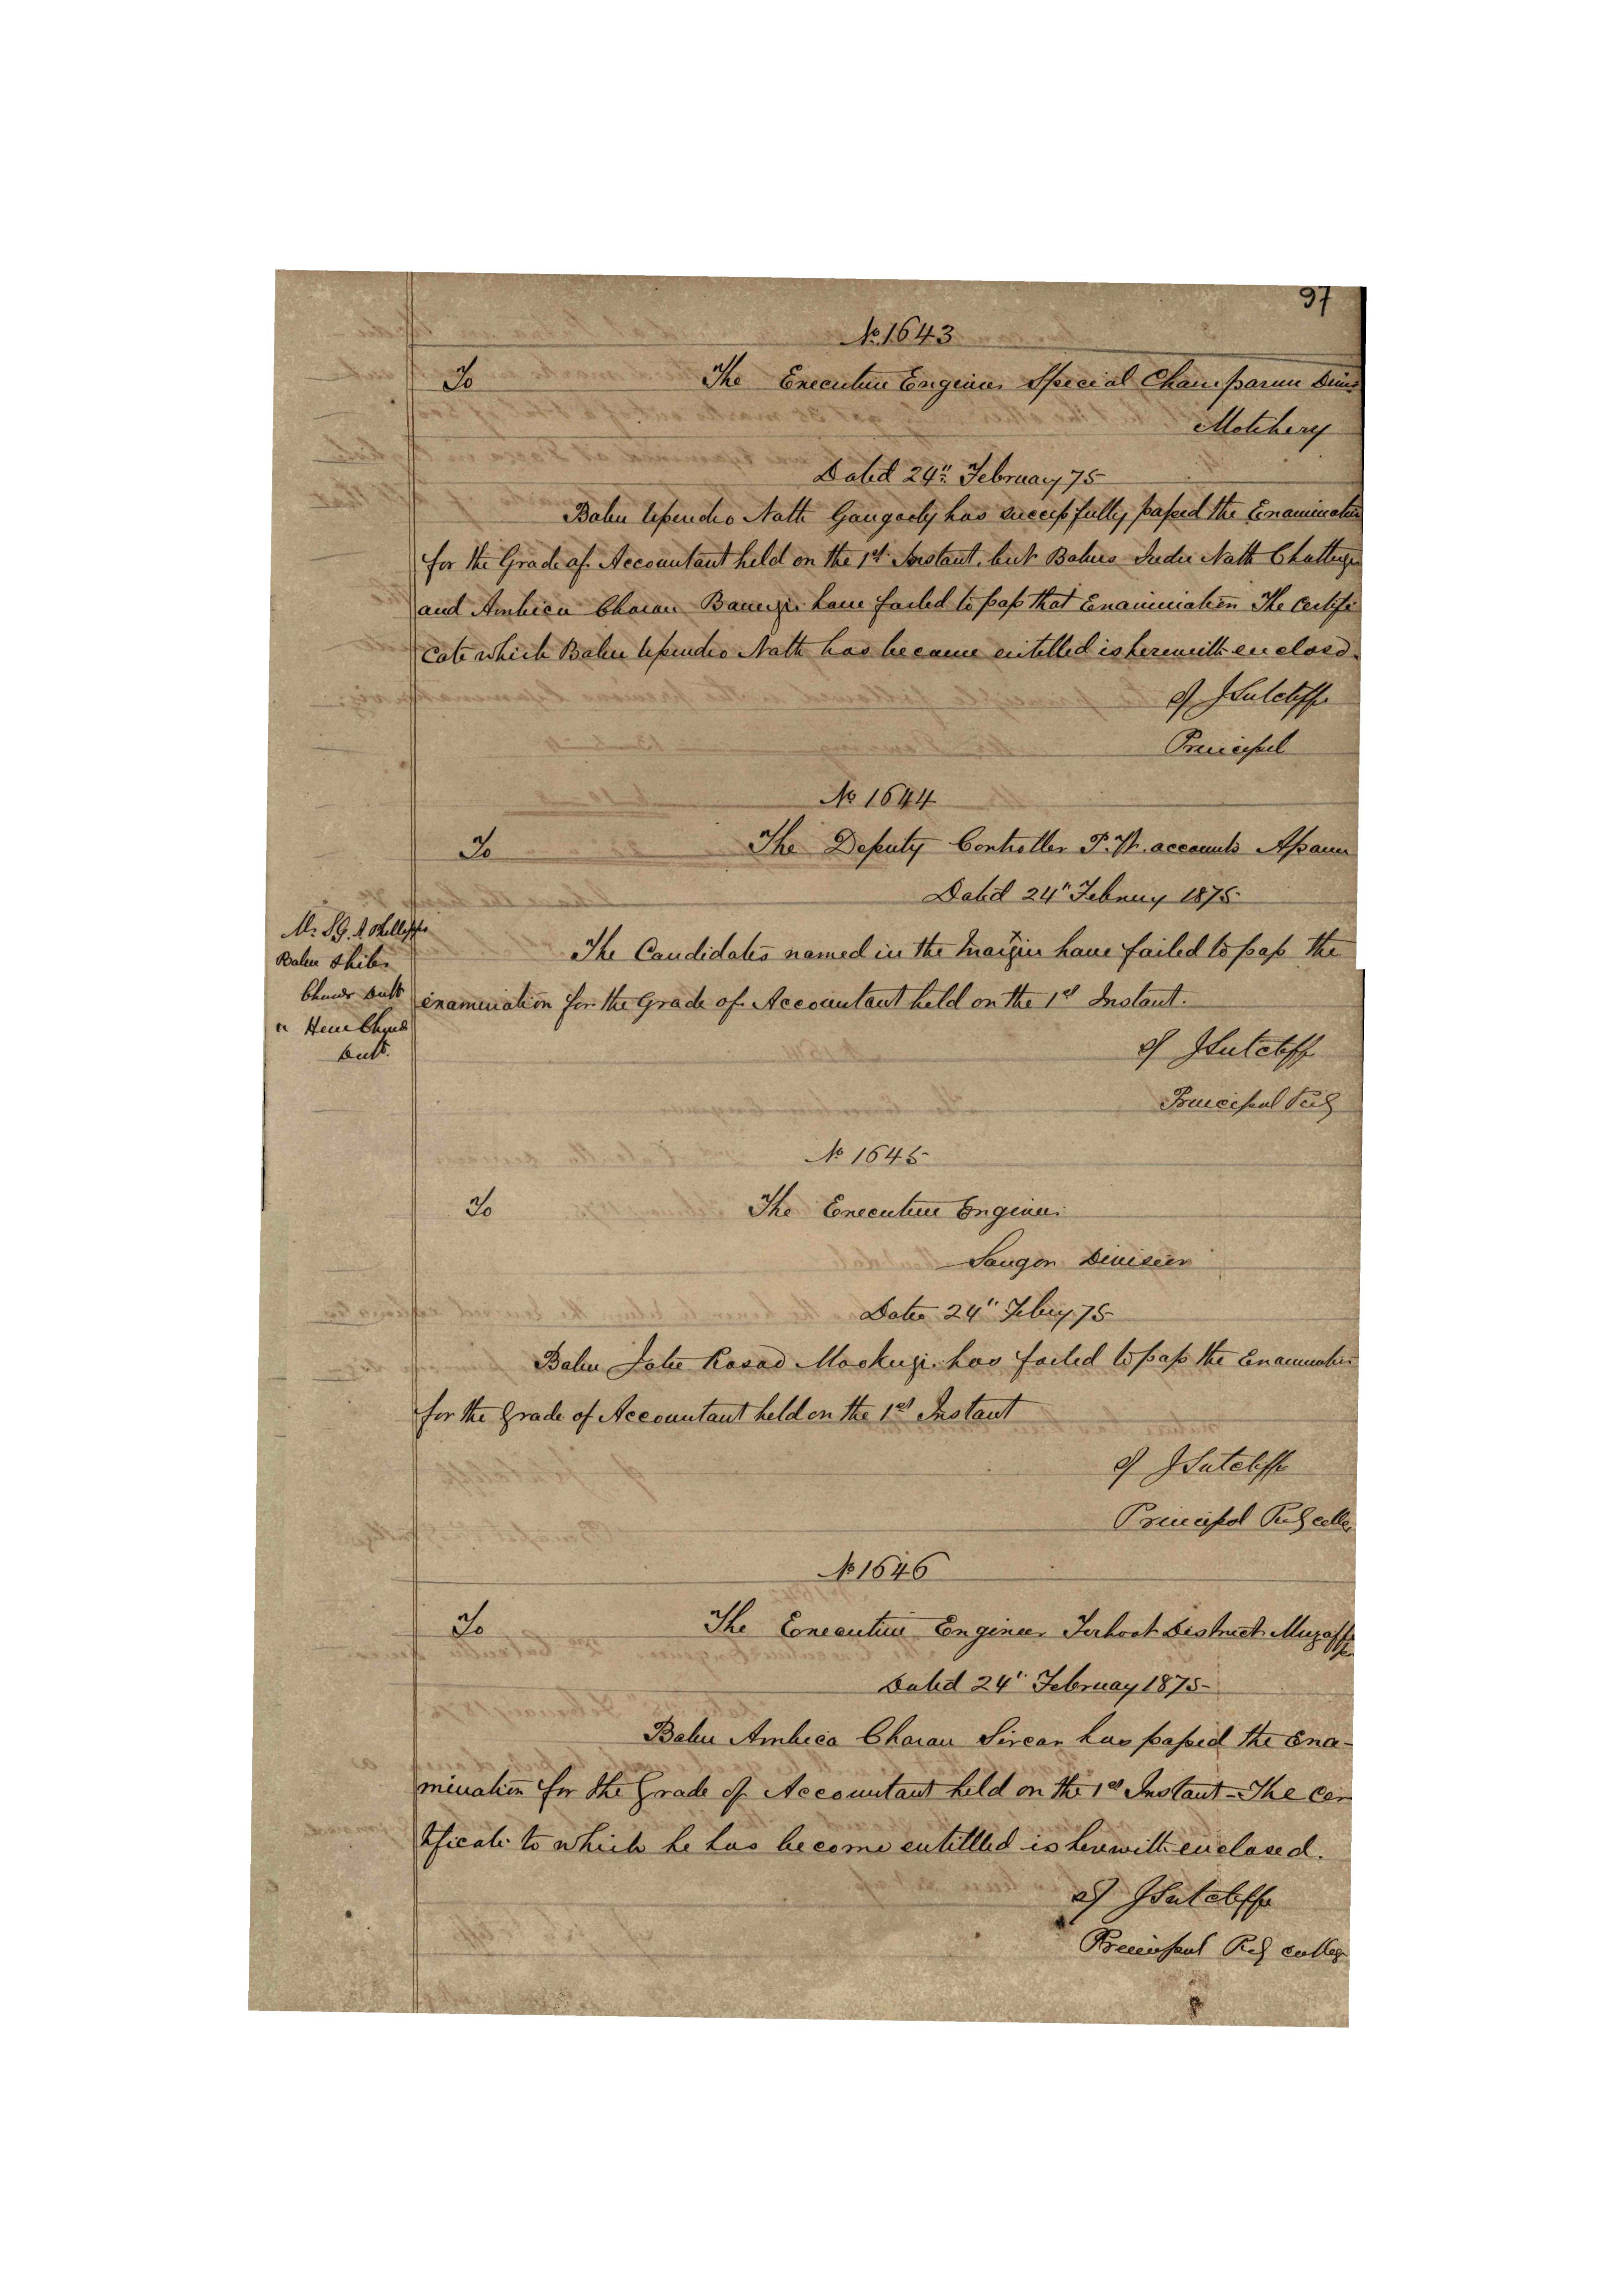 97
No 1643
To The Executive Engineer Special Champarun Divn
Motihery
Dated 24th February 75
Babu Upendro Nath Gangooly has successfully passed the Examination
for the Grade of Accountant held on the 1st Instant, but Babus Indu Nath Chatterji
and Ambica Charan Banerji have failed to pass that Examination The Certifi
cate which Babu Upendro Nath has become entitled is herewith enclosed.
Sd J Sutcliffe
Principal
No 1644
To The Deputy Controller P. W. accounts Assam
Dated 24" Februry 1875
Mr S. G. Phillipps
Babu Shib
Chundr Dutt
" Hem Chund
Dutt.
The Candidates named in the Margin have failed to pass the
examination for the Grade of Accountant held on the 1st Instant.
Sd J Sutcliffe
Principal
No 1645
To The Executive Engineer
Saugor Division
Dated 24" Febry 75
Babu Rasad Mookerji has failed to pass the Examination
for the Grade of Accountant held on the 1st Instant
Sd J Sutcliffe
Principal Presy colle
No 1646
To The Executive Engineer Tirhoot District Muzaffer
Dated 24" February 1875
Babu Ambica Charan Sircar has passed the Exa-
mination for the Grade of Accountant held on the 1st Instant - The Cer
tificate to which he has become entitlled is herewith enclosed.
Sd J Sutcliffe
Principal Presy colleg